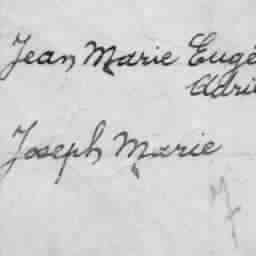 Jean Marie Eugé
Adrie
Joseph Marie